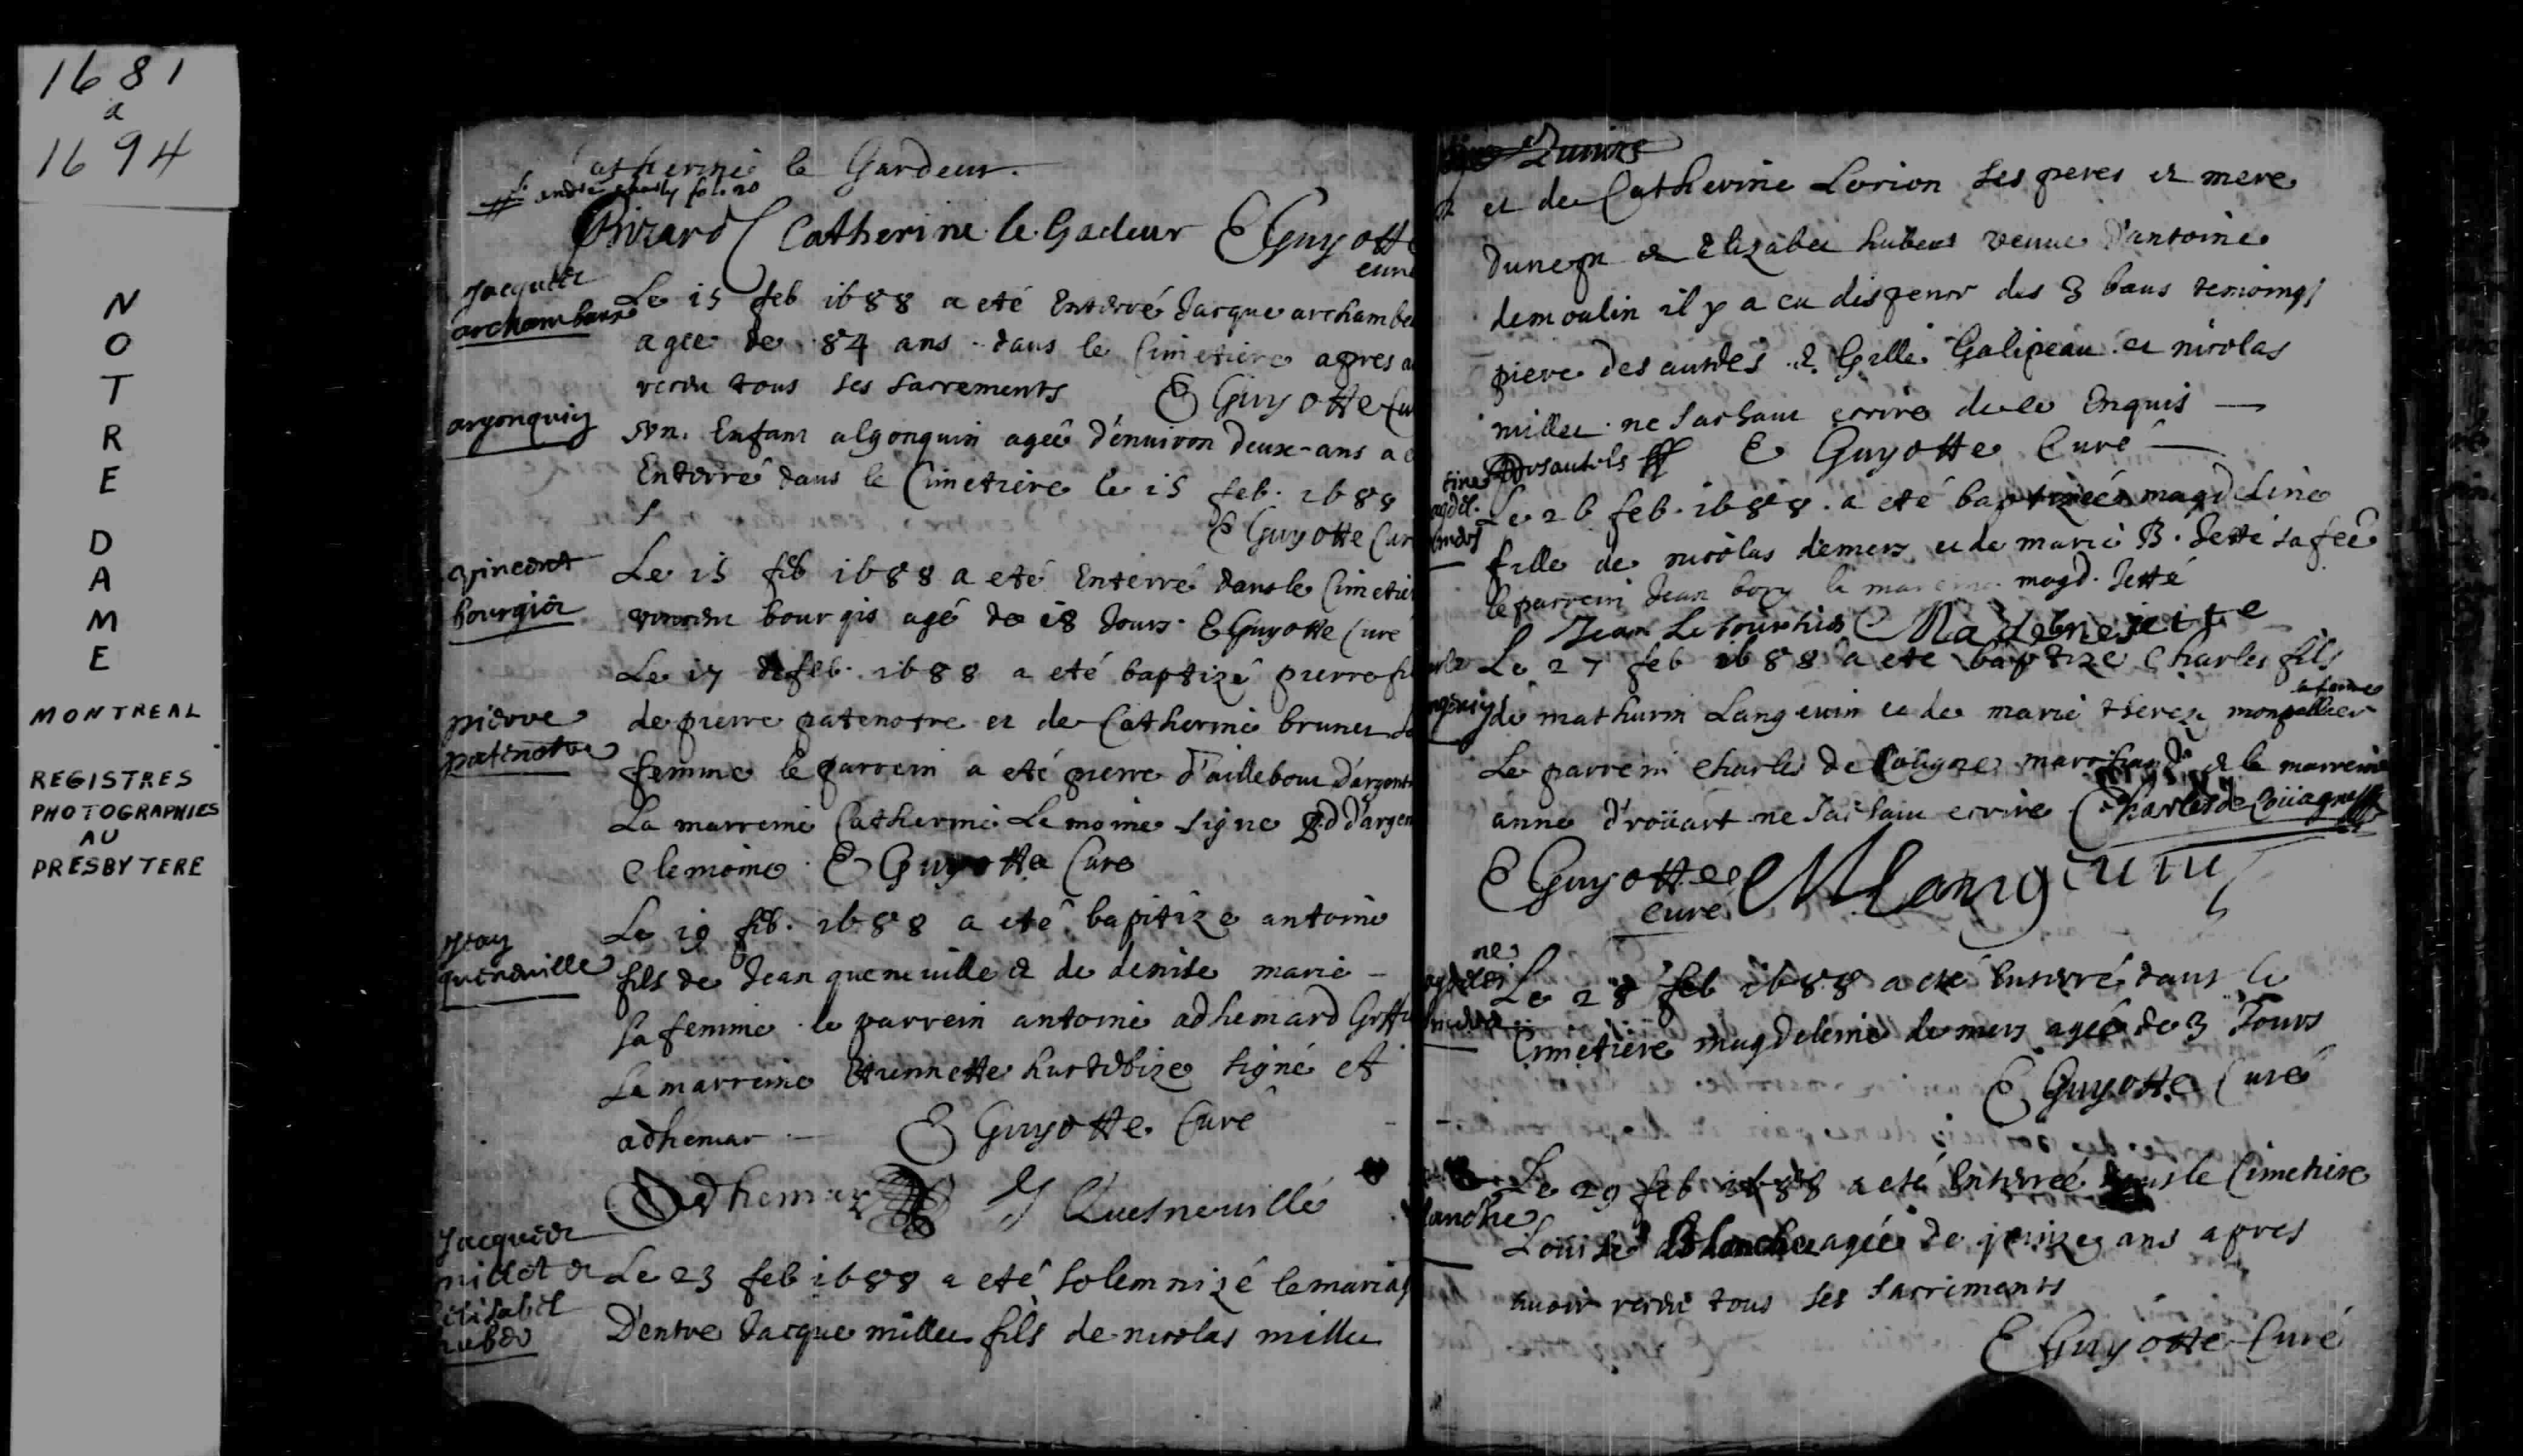 1681
a
1694
NOTRE
DAME
MONTREAL
REGISTRES
PHOTOGRAPHIES
AU
PRESBYTERE
Catherine le Gardeur.
Bizard Catherine le Gadeur E Guyotte
cure
Jacques
archambaux
Le 15 feb 1688 a eté Enterré Jacque archambe
agee de 84 ans dans le Cimetiere apres a
receu tous ses sacrements E Guyotte Cu
argonquin
Vn. Enfant algonquin ageé d'enuiron deux-ans a e
Enterré dans le Cimetiere le 15 feb. 1688
E Guyotte Cur
vincent
bourgior
Le 15 feb 1688 a eté Enterré dans le Cimetie
vincent bourgis agé de 18 Jours. E Guyotte Curé
pierre
patenotre
Le 17 de feb. 1688 a eté baptizé pierre fi
de pierre patenotre et de Catherine brunet sa
femme le parrein a eté pierre d'aillebout d'argent
La marreine Catherine Le moine signé P. d d'argen
C lemoine. E Guyotte Curé
Jean
queneville
Le 19 feb. 1688 a eté baptizé antoine
fils de Jean queneuille & de denise marie -
sa femme. le parrein antoine adhemard Greffi
La marreine Etiennette hurtebize signé et
adhemar - E Guyotte Curé
Adhemar J Quesneuille
Jacques
millet et
Elisabet
hubert
Le 23 feb 1688 a eté solemnizé le mariag
D'entre Jacque millet fils de nicolas millet
et de Catherine Lorion ses peres et mere
d'une pt & Elizabet hubert veuue d'antoine
demoulin il y a eu dispense des 3 bans temoings
pierre des autels & Gille Galipeau et nicolas
millet ne sachant ecrire de ce Enquis —
Desautels E Guyotte Curé
Le 26 feb. 1688. a eté baptizeé magdeleine
fille de nicolas demers et de marie B. Jetté sa fee
le parrein Jean magd. Jetté
Jean Madelene jette
Le 27 feb 1688 a eté baptizé Charles fils
de mathurin Langeuin et de marie therese monpellier
sa femme
Le parrein Charles de Coüagne marchand & la marreine
anne d'roüart ne sachant ecrire Charles de Coüagne
E Guyotte M Langeuin
curé
Le 28 feb 1688 a eté Enterré dans le
Cimetiere magdeleine demers ageé de 3 Jours
E Guyotte Curé
Le 29 feb 1688 a eté Enterreé dans le Cimetiere
lanche
Loüise Blanche ageé de quinze ans apres
auoir receu tous ses sacrements
E Guyotte Curé